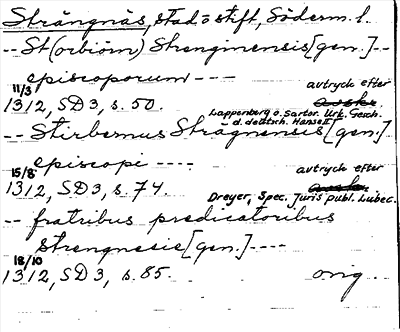 Strängnäs, stad o stift, Söderm. l.
-- St(orbiörn) Strenginensis [gen.] --
episcoporum ----
11/3 avtryck efter
1312, SD 3, s. 50. Lappenberg o. Sartor. Urk. Gesch. d. deutsch. Hanse II
-- Stirbernus Stragnensis [gen.]
episcopi ----
15/8 avtryck efter
1312, SD 3, s. 74. Dreyer, Spec. Juris publ. Lubec.
-- fratribus predicatoribus
Strengnesie [gen.] ----
18/10
1312, SD 3, s. 85. orig.